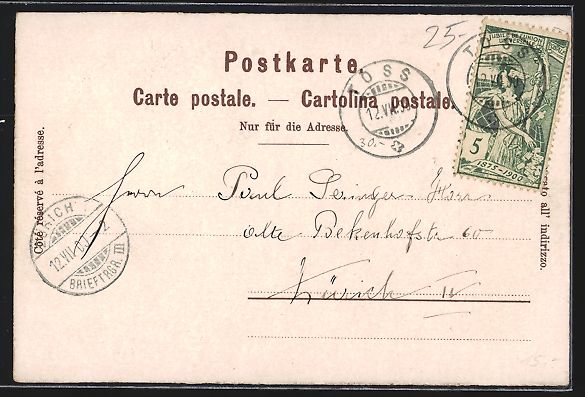 25-
Postkarte.
Carte postale. — Cartolina postale.
Nur für die Adresse.
Côté réservé à l'adresse.
all' indirizzo.
TÖSS
12.VII.00
30.-
TÖSS
JUBILÉ DE L'UNION
5
1875-1900
ZÜRICH
12.VII.00
BRIEFTRGR. III
Herrn Paul
alte Bekenhofstr 60
Zürich IV
15.-